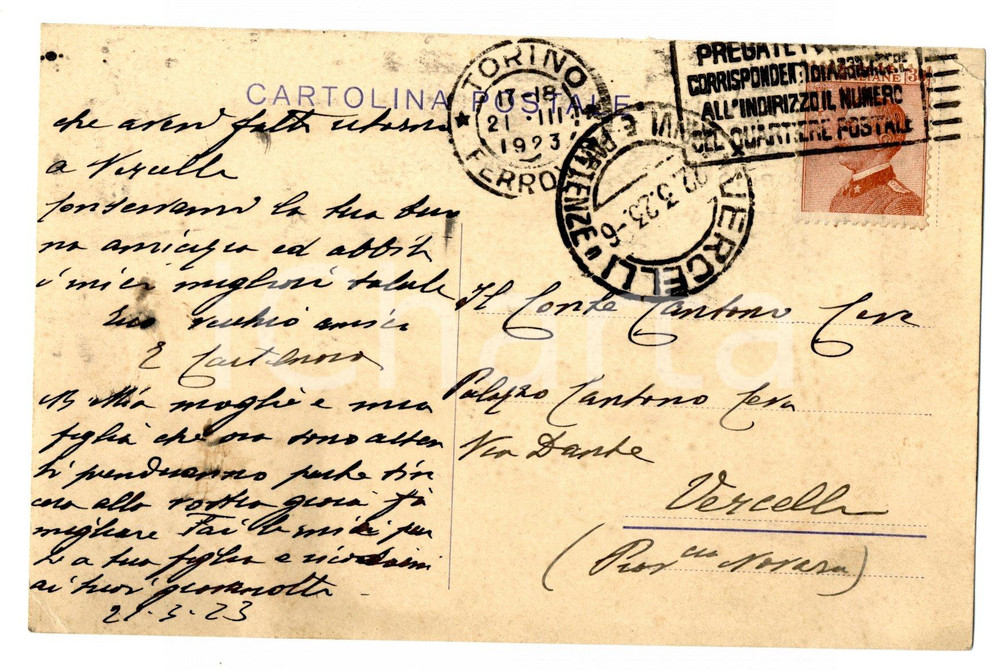 CARTOLINA POSTALE
TORINO
17-18
21 III
1923
FERROVIA
PREGATE I
CORRISPONDENTI DI AGGIUNGERE
ALL'INDIRIZZO IL NUMERO
DEL QUARTIERE POSTALE
VERCELLI
E PARTENZE
22.3.23-6
che avevi fatto ritorno
a Vercelli
Conservami la tua buo
na amicizia ed abbiti
i miei migliori saluti
tuo vecchio amico
E
NB Mia moglie e mia
figlia che ora sono assen
ti prenderanno parte sin
cera alla vostra gioia fa
migliare Fai le mie
a tua figlia e
ai tuoi giovanotti
21-3-23
Il Conte Cantono Ceva
Palazzo Cantono Ceva
Via Dante
Vercelli
(Prov cia Novara)
lcharta